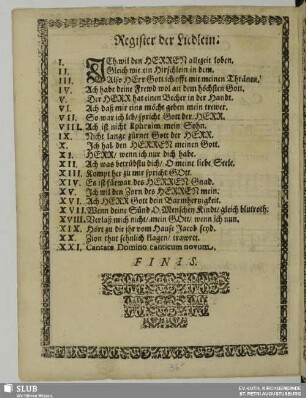 Register der Liedlein.
I. ICh wil den HERREN allzeit loben,
II. Gleich wie ein Hirschlein in dem.
III. Also HErr Gott ich offt mit meinen Thränen,
IV. Ach habe deine Frewd wol an dem höchsten Gott,
V. Der HERR hat einen Becher in der Handt.
VI. Ach daß mir eins möcht geben mein trewer.
VII. So war ich leb/ spricht Gott der HERR.
VIII. Ach ist nicht Ephraim mein Sohn.
IX. Nicht lange zürnet Gott der HERR.
X. Ich hal den HERREN meinen Gott.
XI. HERR/ wenn ich nur dich habe.
XII. Ach was betrübstu dich/ O meine liebe Seele.
XIII. Kompt her zu mir spricht GOtt.
XIV. Es ist fürwar des HERREN Gnad.
XV. Ich wil den Zorn des HERREN mein.
XVI. Ach HERR Gott dein Barmhertzigkeit.
XVII. Wenn deine Sünd O Menschen Kindt/ gleich blutroth:
XVIII. Verlaß mich nicht/ mein GOtt/ wenn ich nun,
XIX. Hört zu die ihr vom Hause Jacob seyd.
XX. Zion thut sehnlich klagen/ trawret.
XXI. Cantate Domino canticum novum.
FINIS.
SLUB
Wir führen Wissen.
EV.-LUTH. KIRCHGEMEINDE
ST. PETRI AUGUSTUSBURG